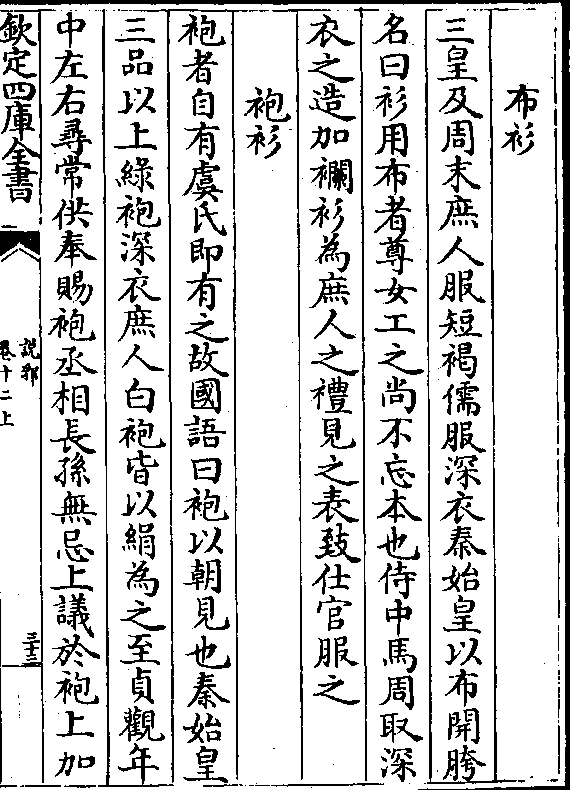 布衫
三皇及周末庶人服短褐儒服深衣秦始皇以布開胯
名曰衫用布者尊女工之尚不忘本也侍中馬周取深
衣之造加襴衫為庶人之禮見之表致仕官服之
袍衫
袍者自有虞氏即有之故國語曰袍以朝見也秦始皇
三品以上綠袍深衣庶人白袍皆以絹為之至貞觀年
中左右尋常供奉賜袍丞相長孫無忌上議於袍上加
欽定四庫全書
說郛
卷十二上
三十三